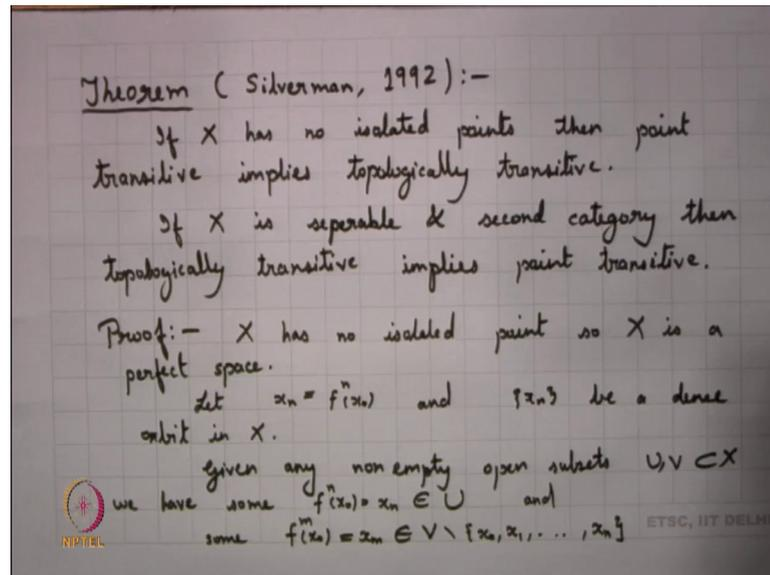 Theorem ( Silverman, 1992 ) :-
If X has no isolated points then point
transitive implies topologically transitive.
If X is seperable & second category then
topologically transitive implies point transitive.
Proof :- X has no isolated point so X is a
perfect space.
Let xₙ = fⁿ(x₀) and {xₙ} be a dense
orbit in X.
Given any non empty open subsets U, V ⊂ X
we have some fⁿ(x₀) = xₙ ∈ U and
some fᵐ(x₀) = xₘ ∈ V \ {x₀, x₁, . . . , xₙ}
NPTEL
ETSC, IIT DELH